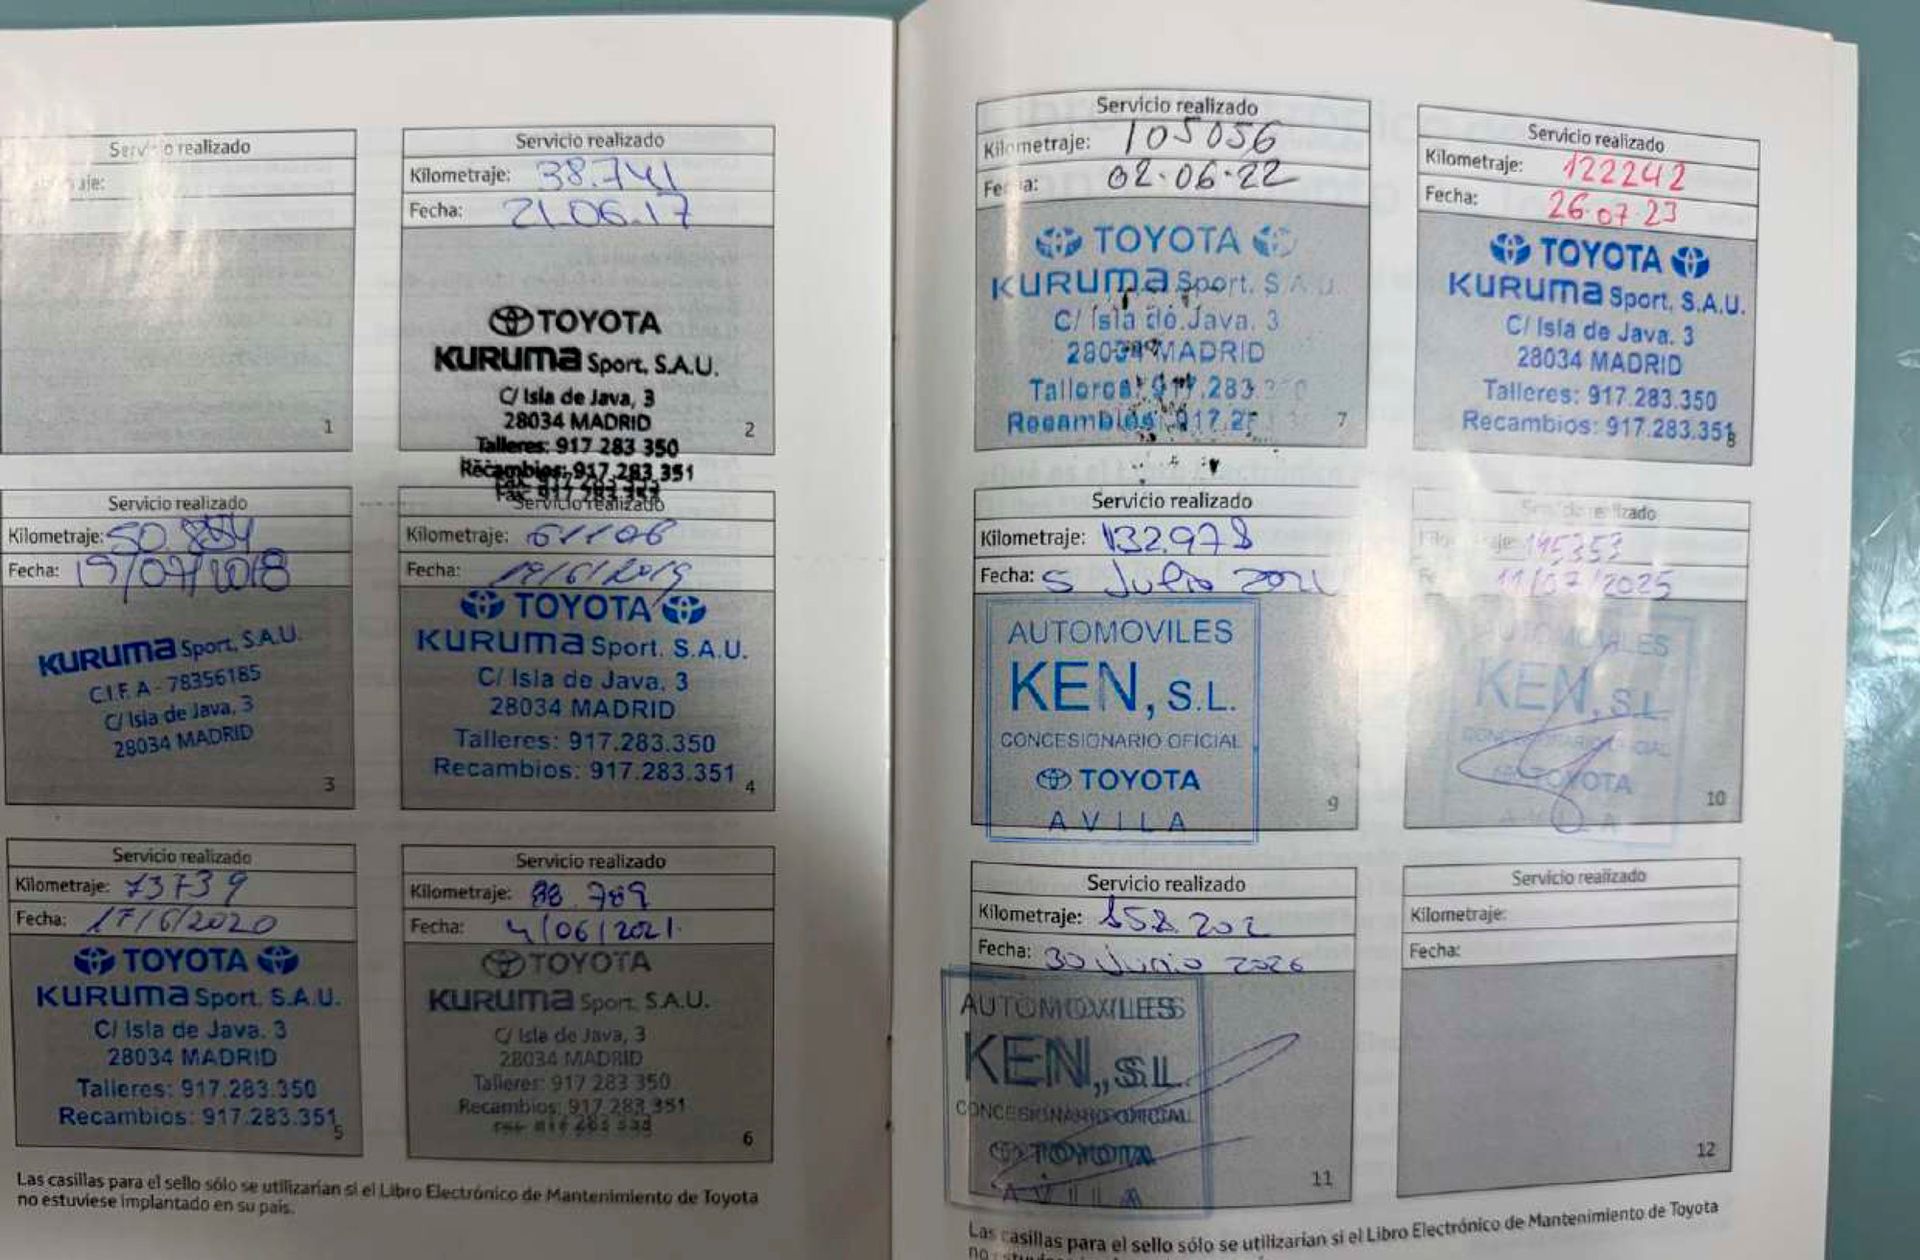 Servicio realizado
1
Servicio realizado
Kilometraje: 38.741
Fecha: 21.06.17
TOYOTA
KURUMA Sport, S.A.U.
C/ Isla de Java, 3
28034 MADRID
Talleres: 917 283 350
Recambios: 917.283.351
2
Servicio realizado
Kilometraje: 50.854
Fecha: 19/07/2018
KURUMA Sport, S.A.U.
C.I.F. A - 78356185
C/ Isla de Java, 3
28034 MADRID
3
Servicio realizado
Kilometraje: 61106
Fecha: 19/6/2019
TOYOTA
KURUMA Sport. S.A.U.
C/ Isla de Java. 3
28034 MADRID
Talleres: 917.283.350
Recambios: 917.283.351
4
Servicio realizado
Kilometraje: 73739
Fecha: 17/6/2020
TOYOTA
KURUMA Sport. S.A.U.
C/ Isla de Java. 3
28034 MADRID
Talleres: 917.283.350
Recambios: 917.283.351
5
Servicio realizado
Kilometraje: 88.789
Fecha: 4/06/2021.
TOYOTA
KURUMA Sport. S.A.U.
C/ Isla de Java, 3
28034 MADRID
Talleres: 917 283 350
Recambios: 917 283 351
6
Las casillas para el sello sólo se utilizarían si el Libro Electrónico de Mantenimiento de Toyota
no estuviese implantado en su país.
Servicio realizado
Kilometraje: 105056
Fecha: 02.06.22
TOYOTA
KURUMA Sport. S.A.U.
C/ Isla de Java. 3
28034 MADRID
Talleres: 917.283
Recambios: 917
7
Servicio realizado
Kilometraje: 122242
Fecha: 26.07.23
TOYOTA
KURUMA Sport, S.A.U.
C/ Isla de Java. 3
28034 MADRID
Talleres: 917.283.350
Recambios: 917.283.351
8
Servicio realizado
Kilometraje: 132.978
Fecha: 5 Julio
AUTOMOVILES
KEN, S.L.
CONCESIONARIO OFICIAL
TOYOTA
AVILA
9
Servicio realizado
145353
11/07/2025
AUTOMOVILES
KEN, S.L.
CONCESIONARIO OFICIAL
TOYOTA
AVILA
10
Servicio realizado
Kilometraje: 158.202
Fecha: 30 Junio 2026
AUTOMOVILES
KEN, S.L.
CONCESIONARIO OFICIAL
TOYOTA
AVILA
11
Servicio realizado
Kilometraje:
Fecha:
12
Las casillas para el sello sólo se utilizarían si el Libro Electrónico de Mantenimiento de Toyota
no